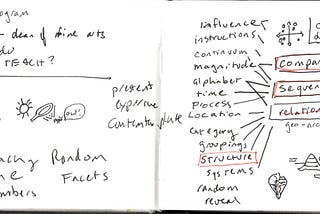 ogram
- dean of fine arts
TEACH?
present
OW!
Random
Facets
influence
instructions
continuum
magnitude
alphabet
time
Process
Location
category
groupings
STRUCTURE
systems
random
reveal
Compa
Sequen
relation
geo-